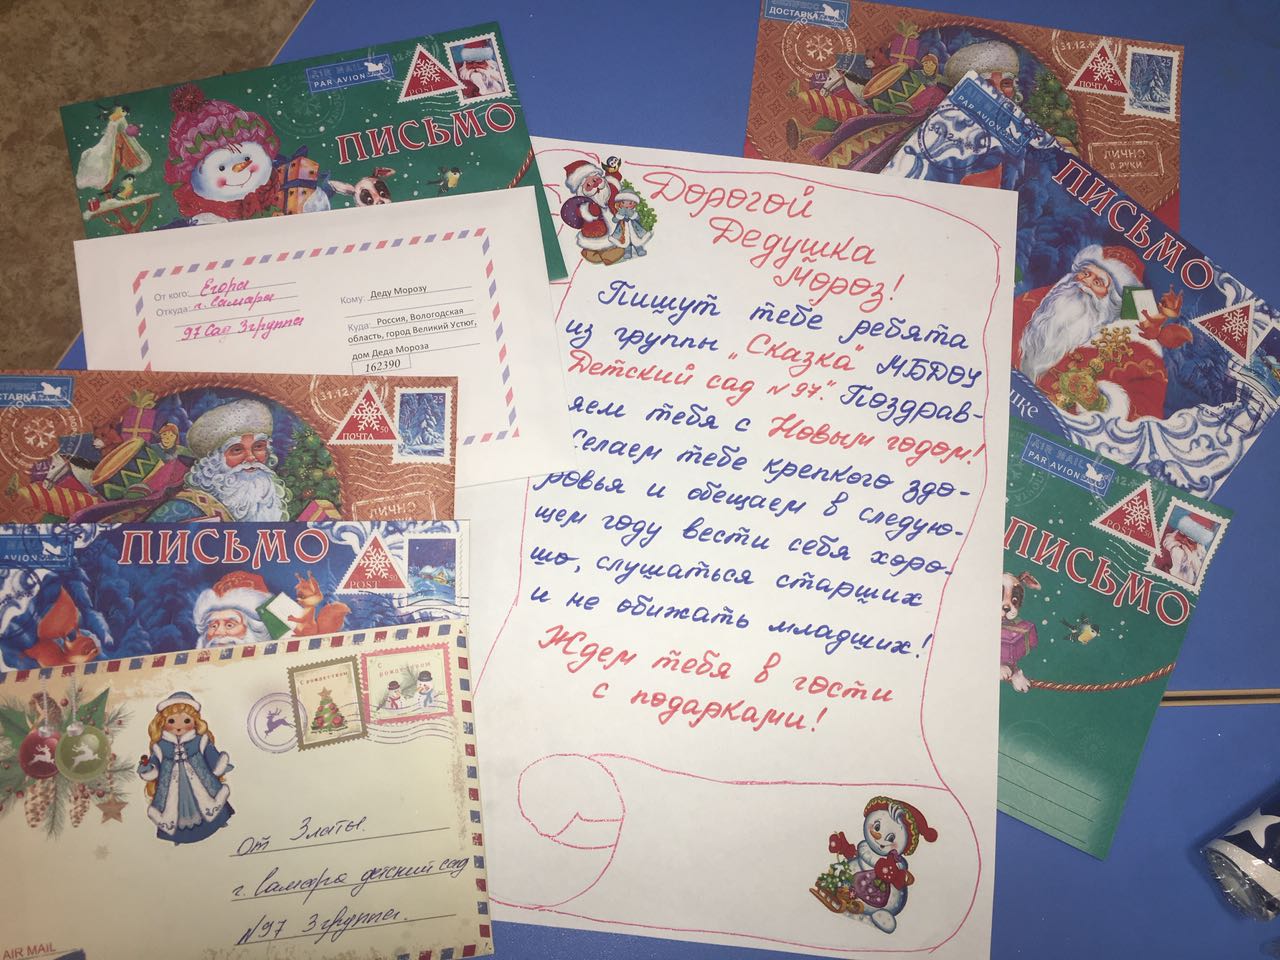 AIR MAIL
PAR AVION
POST
ПИСЬМО
От кого: Егора
Откуда: г. Самара
97 сад 3 группа
Кому: Деду Морозу
Куда: Россия, Вологодская
область, город Великий Устюг,
дом Деда Мороза
162390
ДОСТАВКА
31.12
ПОЧТА
50
25
ЛИЧНО
ПИСЬМО
POST
50
От Златы.
г. Самара детский сад
№97 3 группа.
С рождеством
С рождеством
AIR MAIL
Дорогой
Дедушка
Мороз!
Пишут тебе ребята
из группы „Сказка" МБДОУ
Детский сад №97." Поздрав-
яем тебя с Новым годом!
елаем тебе крепкого здо-
ровья и обещаем в следую-
щем году вести себя хоро-
шо, слушаться старших
и не обижать младших!
Ждем тебя в гости
с подарками!
ДОСТАВКА
31.12
ПОЧТА
50
25
ЛИЧНО
В РУКИ
PAR AVION
ПИСЬМО
POST
50
AIR MAIL
PAR AVION
POST
50
ПИСЬМО